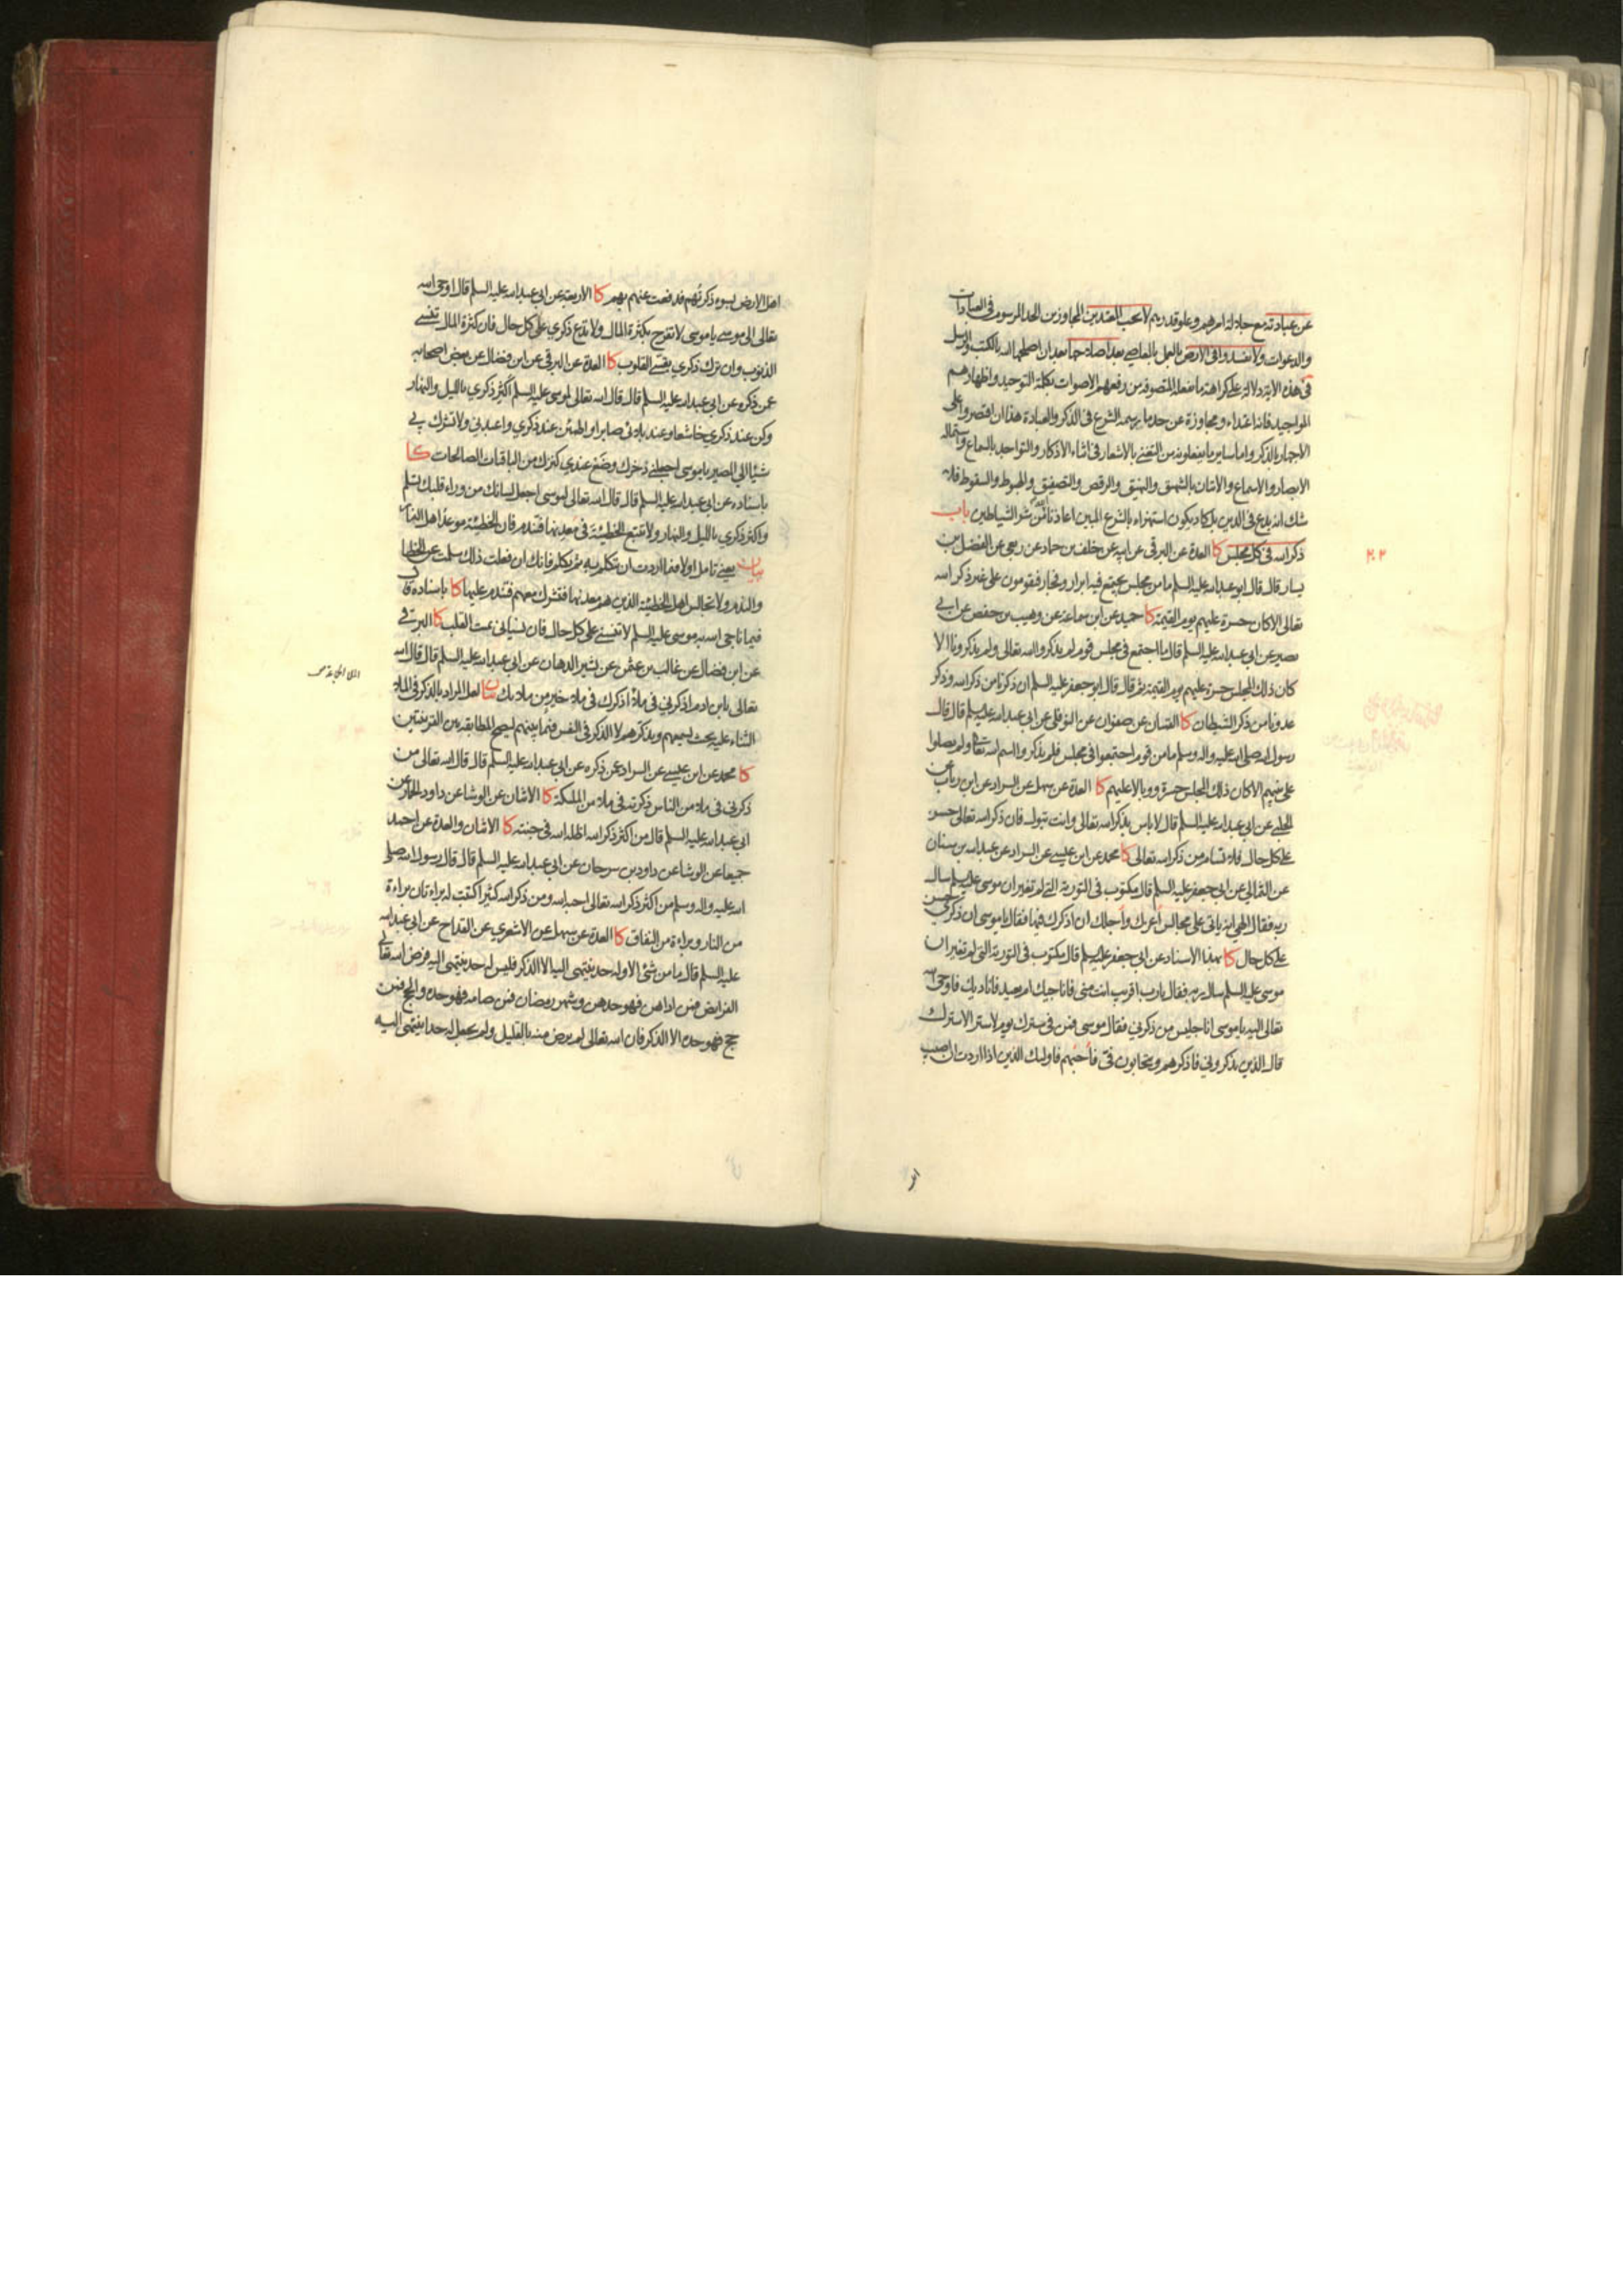 عن عبادته مع جلالة امرهم وعلو قدرهم لا يحب المعتدين المجاوزين الحد المرسوم في العبادات
والدعوات ولا تفسدوا في الارض بالعمل بالمعاصي بعد اصلاحها بعد ان اصلحها الله بالكتب والرسل
في هذه الاية دلالة على كراهة ما تفعله المتصوفة من رفعهم الاصوات بكلمة التوحيد واظهارهم
المواجيد فانه اعتداء ومجاوزة عن حد ما يرسمه الشرع في الذكر والعبادة هذا ان اقتصروا على
الاجهار بالذكر واما ساير ما يفعلونه من التغني بالاشعار في اثناء الاذكار والتواجد بالسماع واستمالة
الابصار والاسماع والاتيان بالشهيق والنهيق والرقص والتصفيق والهبوط والسقوط فلا
شك انه بدع في الدين بل كاد يكون استهزاء بالشرع المبين اعاذنا الله من شر الشياطين باب
ذكر الله في كل مجلس كا العدة عن البرقي عن ابيه عن خلف بن حماد عن ربعي عن الفضيل بن
٢٠٢
يسار قال قال ابو عبد الله عليه السلم ما من مجلس يجتمع فيه ابرار وفجار فيقومون على غير ذكر الله
تعالى الا كان حسرة عليهم يوم القيمة كا حميد عن ابن سماعة عن وهيب بن حفص عن ابي
بصير عن ابي عبد الله عليه السلم قال ما اجتمع في مجلس قوم لم يذكروا الله تعالى ولم يذكرونا الا
كان ذلك المجلس حسرة عليهم يوم القيمة ثم قال قال ابو جعفر عليه السلم ان ذكرنا من ذكر الله وذكر
عدونا من ذكر الشيطان كا القميان عن صفوان عن النوفلي عن ابي عبد الله عليه السلم قال قال
رسول الله صلى الله عليه واله وسلم ما من قوم اجتمعوا في مجلس فلم يذكروا اسم الله تعالى ولم يصلوا
على نبيهم الا كان ذلك المجلس حسرة ووبالا عليهم كا العدة عن سهل عن السراد عن ابن رئاب عن
الحلبي عن ابي عبد الله عليه السلم قال لا باس بذكر الله تعالى وانت تبول فان ذكر الله تعالى حسن
على كل حال فلا تسام من ذكر الله تعالى كا محمد عن ابن عيسى عن السراد عن عبد الله بن سنان
عن الثمالي عن ابي جعفر عليه السلم قال مكتوب في التورية التي لم تغير ان موسى عليه السلم سال
ربه فقال الهي انه ياتي على مجالس اعزك واجلك ان اذكرك فيها فقال يا موسى ان ذكري حسن
على كل حال كا بهذا الاسناد عن ابي جعفر عليه السلم قال مكتوب في التورية التي لم تغير ان
موسى عليه السلم سال ربه فقال يا رب اقريب انت مني فاناجيك ام بعيد فاناديك فاوحى الله
تعالى اليه يا موسى انا جليس من ذكرني فقال موسى فمن في سترك يوم لا ستر الا سترك
قال الذين يذكروني فاذكرهم ويتحابون في فاحبهم فاولئك الذين اذا اردت ان اصيب
اهل الارض بسوء ذكرتهم فدفعت عنهم بهم كا الاربعة عن ابي عبد الله عليه السلم قال اوحى الله
تعالى الى موسى يا موسى لا تفرح بكثرة المال ولا تدع ذكري على كل حال فان كثرة المال تنسي
الذنوب وان ترك ذكري يقسي القلوب كا العدة عن البرقي عن ابن فضال عن بعض اصحابه
عمن ذكره عن ابي عبد الله عليه السلم قال قال الله تعالى لموسى عليه السلم اكثر ذكري بالليل والنهار
وكن عند ذكري خاشعا وعند بلائي صابرا واطمئن عند ذكري واعبدني ولا تشرك بي
شيئا الي المصير يا موسى اجعلني ذخرك وضع عندي كنزك من الباقيات الصالحات كا
باسناده عن ابي عبد الله عليه السلم قال قال الله تعالى لموسى اجعل لسانك من وراء قلبك تسلم
واكثر ذكري بالليل والنهار ولا تتبع الخطيئة في معدنها فتندم فان الخطيئة موعد اهل النار
بيان يعني تامل اولا فيما اردت ان تتكلم به ثم تكلم فانك ان فعلت ذلك سلمت عن الخطا
والندم ولا تجالس اهل الخطيئة الذين هم معدنها فتشرك معهم فتندم عليها كا باسناده قال
فيما ناجى الله به موسى عليه السلم لا تنسني على كل حال فان نسياني يميت القلب كا البرقي
عن ابن فضال عن غالب بن عثمن عن بشير الدهان عن ابي عبد الله عليه السلم قال قال الله
تعالى يا بن ادم اذكرني في ملا اذكرك في ملا خير من ملائك بيان لعل المراد بالذكر في الملا
الثناء عليه بحيث يسمعهم ويذكرهم لا الذكر في النفس فيما بينهم ليصح المطابقة بين القرينتين
كا محمد عن ابن عيسى عن السراد عمن ذكره عن ابي عبد الله عليه السلم قال قال الله تعالى من
ذكرني في ملا من الناس ذكرته في ملا من الملئكة كا الاثنان عن الوشا عن داود الحمار عن
ابي عبد الله عليه السلم قال من اكثر ذكر الله اظله الله في جنته كا الاثنان والعدة عن احمد
جميعا عن الوشا عن داود بن سرحان عن ابي عبد الله عليه السلم قال قال رسول الله صلى
الله عليه واله وسلم من اكثر ذكر الله تعالى احبه الله ومن ذكر الله كثيرا كتبت له براءتان براءة
من النار وبراءة من النفاق كا العدة عن سهل عن الاشعري عن القداح عن ابي عبد الله
عليه السلم قال ما من شئ الا وله حد ينتهي اليه الا الذكر فليس له حد ينتهي اليه فرض الله تعالى
الفرايض فمن اداهن فهو حدهن وشهر رمضان فمن صامه فهو حده والحج فمن
حج فهو حده الا الذكر فان الله تعالى لم يرض منه بالقليل ولم يجعل له حدا ينتهي اليه